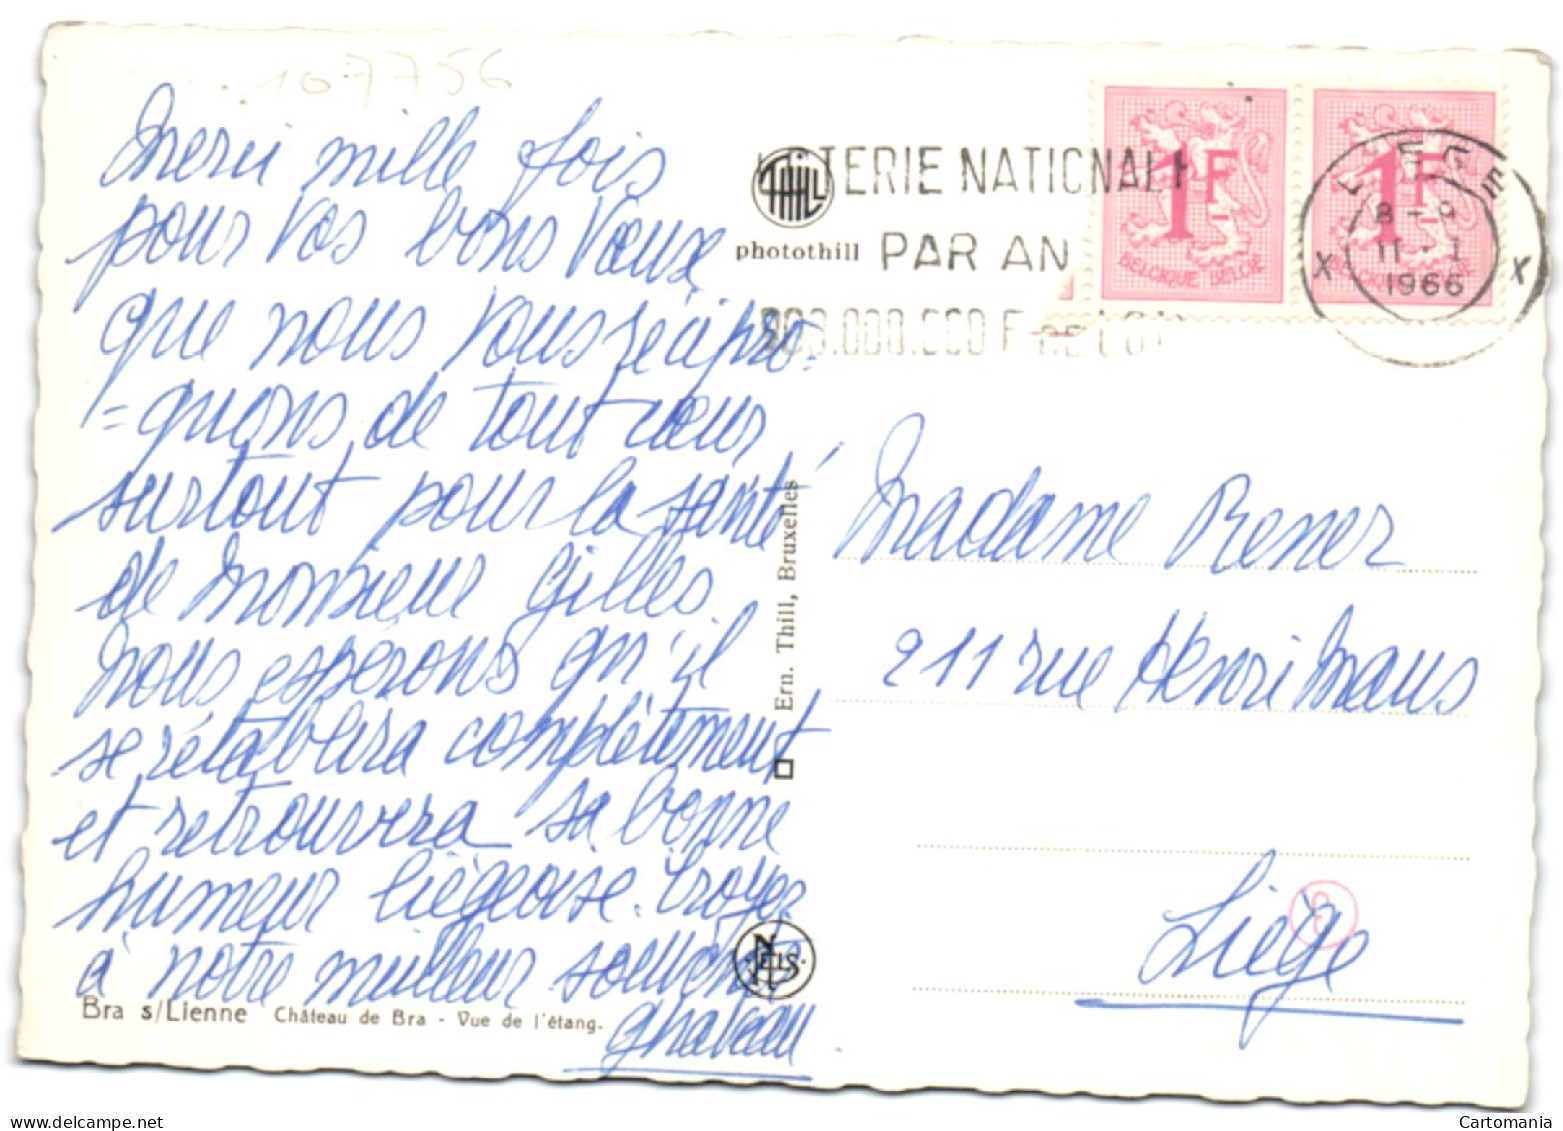 107756
Merci mille fois
pour vos bons vœux
que nous vous récipro-
=quons de tout cœur
surtout pour la santé
de Monsieur Gilles.
Nous espérons qu'il
se rétablira complètement
et retrouvera sa bonne
humeur liégeoise. Croyez
à notre meilleur souvenir
Bra s/Lienne Château de Bra - Vue de l'étang.
THILL
photothill
Ern. Thill, Bruxelles
NELS
TERIE NATIONAL
PAR AN
000.000.000 F
1F
BELGIQUE BELGIE
1F
LIEGE
8-9
11-1
1966
X X
Madame Rener
211 rue Henri Maus
Liège
Cartomania
https://www.delcampe.net